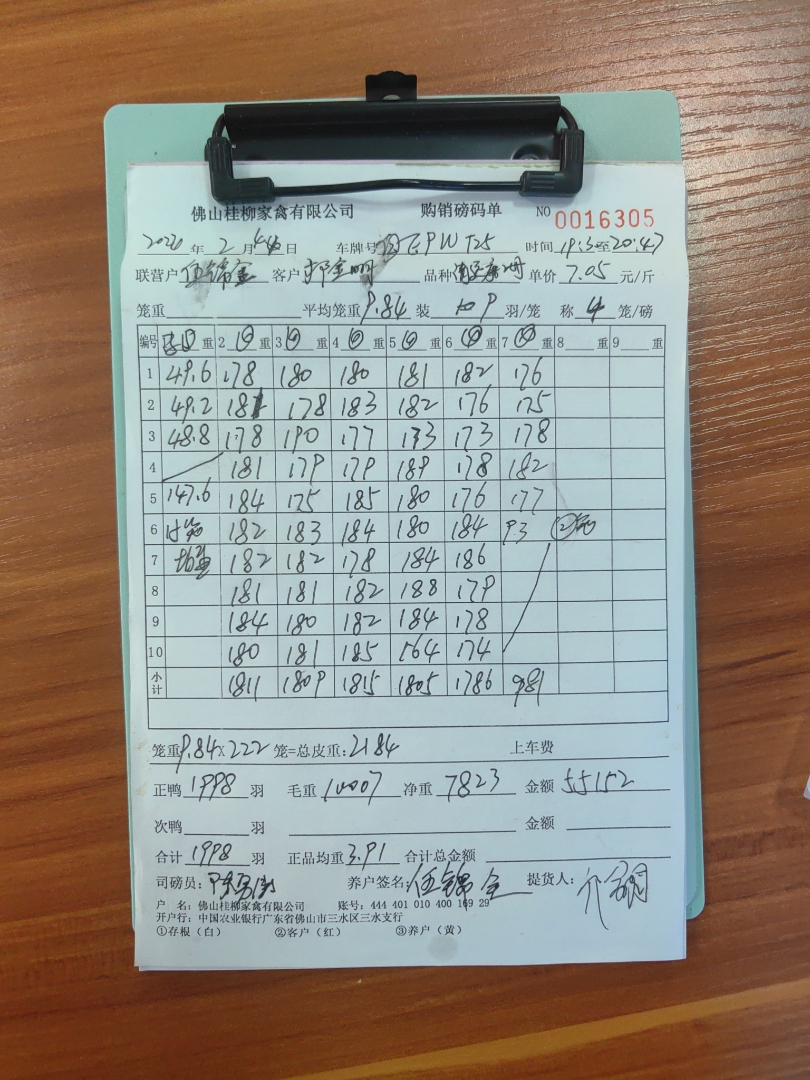 佛山桂柳家禽有限公司 购销磅码单 NO 0016305
2026 年 2 月 日 车牌号 EPW T25 时间 19:3 至 20:47
联营户 伍锦全 客户 单价 7.05 元/斤
笼重 平均笼重 9.84 装 9 羽/笼 称 4 笼/磅
编号 重 2 重 3 重 4 重 5 重 6 重 7 重 8 重 9 重
1 49.6 178 180 180 181 182 176
2 49.2 181 178 183 182 176 175
3 48.8 178 190 177 173 173 178
4 181 179 179 189 178 182
5 147.6 184 175 185 180 176 177
6 15笼 182 183 184 180 184 93 ②笼
7 182 182 178 184 186
8 181 181 182 188 179
9 184 180 182 184 178
10 180 181 185 164 174
小计 1811 1809 1815 1805 1786 981
笼重 9.84 x 222 笼=总皮重: 2184 上车费
正鸭 1998 羽 毛重 10007 净重 7823 金额 55152
次鸭 羽 金额
合计 1998 羽 正品均重 3.91 合计总金额
司磅员: 养户签名: 伍锦全 提货人:
户 名: 佛山桂柳家禽有限公司 账号: 444 401 010 400 169 29
开户行: 中国农业银行广东省佛山市三水区三水支行
①存根（白） ②客户（红） ③养户（黄）